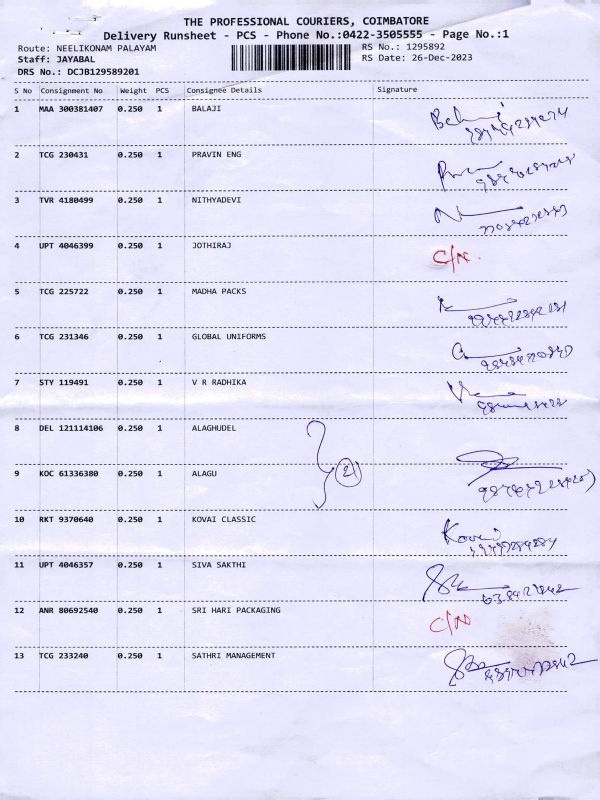 THE PROFESSIONAL COURIERS, COIMBATORE
Delivery Runsheet - PCS - Phone No.:0422-3505555 - Page No.:1
Route: NEELIKONAM PALAYAM RS No.: 1295892
Staff: JAYABAL RS Date: 26-Dec-2023
DRS No.: DCJB129589201
S No Consignment No Weight PCS Consignee Details Signature
1 MAA 300381407 0.250 1 BALAJI
2 TCG 230431 0.250 1 PRAVIN ENG
3 TVR 4180499 0.250 1 NITHYADEVI
4 UPT 4046399 0.250 1 JOTHIRAJ C/N.
5 TCG 225722 0.250 1 MADHA PACKS
6 TCG 231346 0.250 1 GLOBAL UNIFORMS
7 STY 119491 0.250 1 V R RADHIKA
8 DEL 121114106 0.250 1 ALAGHUDEL
9 KOC 61336380 0.250 1 ALAGU 2
10 RKT 9370640 0.250 1 KOVAI CLASSIC Kovai
11 UPT 4046357 0.250 1 SIVA SAKTHI
12 ANR 80692540 0.250 1 SRI HARI PACKAGING C/N
13 TCG 233240 0.250 1 SATHRI MANAGEMENT